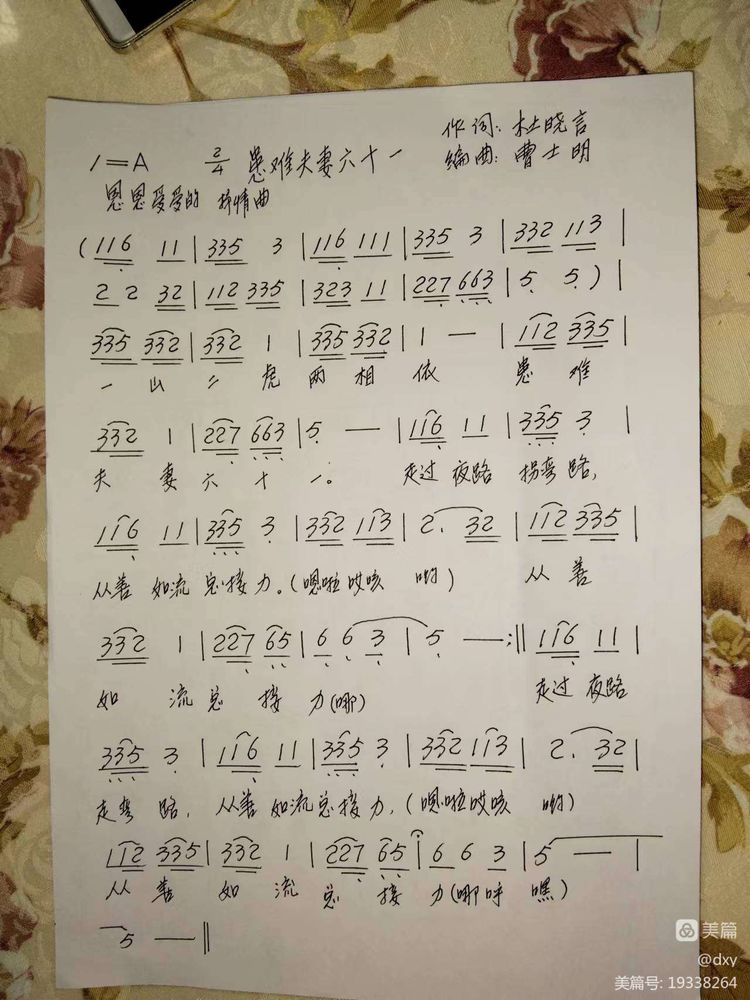 作词：杜晓言
1=A 2/4 患难夫妻六十一 编曲：曹士明
恩恩爱爱的 抒情曲
(116 11|335 3|116 111|335 3|332 113|
2 2 32|112 335|323 11|227 663|5 5)|
335 332|332 1|335 332|1 —|112 335|
一 山 二 虎 两 相 依 患 难
332 1|227 663|5 —|116 11|335 3|
夫 妻 六 十 一。 走过 夜路 拐弯 路，
116 11|335 3|332 113|2. 32|112 335|
从善 如流 总接 力。（嗯啦哎咳 哟） 从 善
332 1|227 65|6 6 3|5 —:‖116 11|
如 流 总 接 力（哪） 走过 夜路
335 3|116 11|335 3|332 113|2. 32|
走弯 路， 从善 如流 总接 力，（嗯啦哎咳 哟）
112 335|332 1|227 65|6 6 3|5 —|
从 善 如 流 总 接 力（哪呀 嘿）
5 —‖
美篇
@dxy
美篇号：19338264